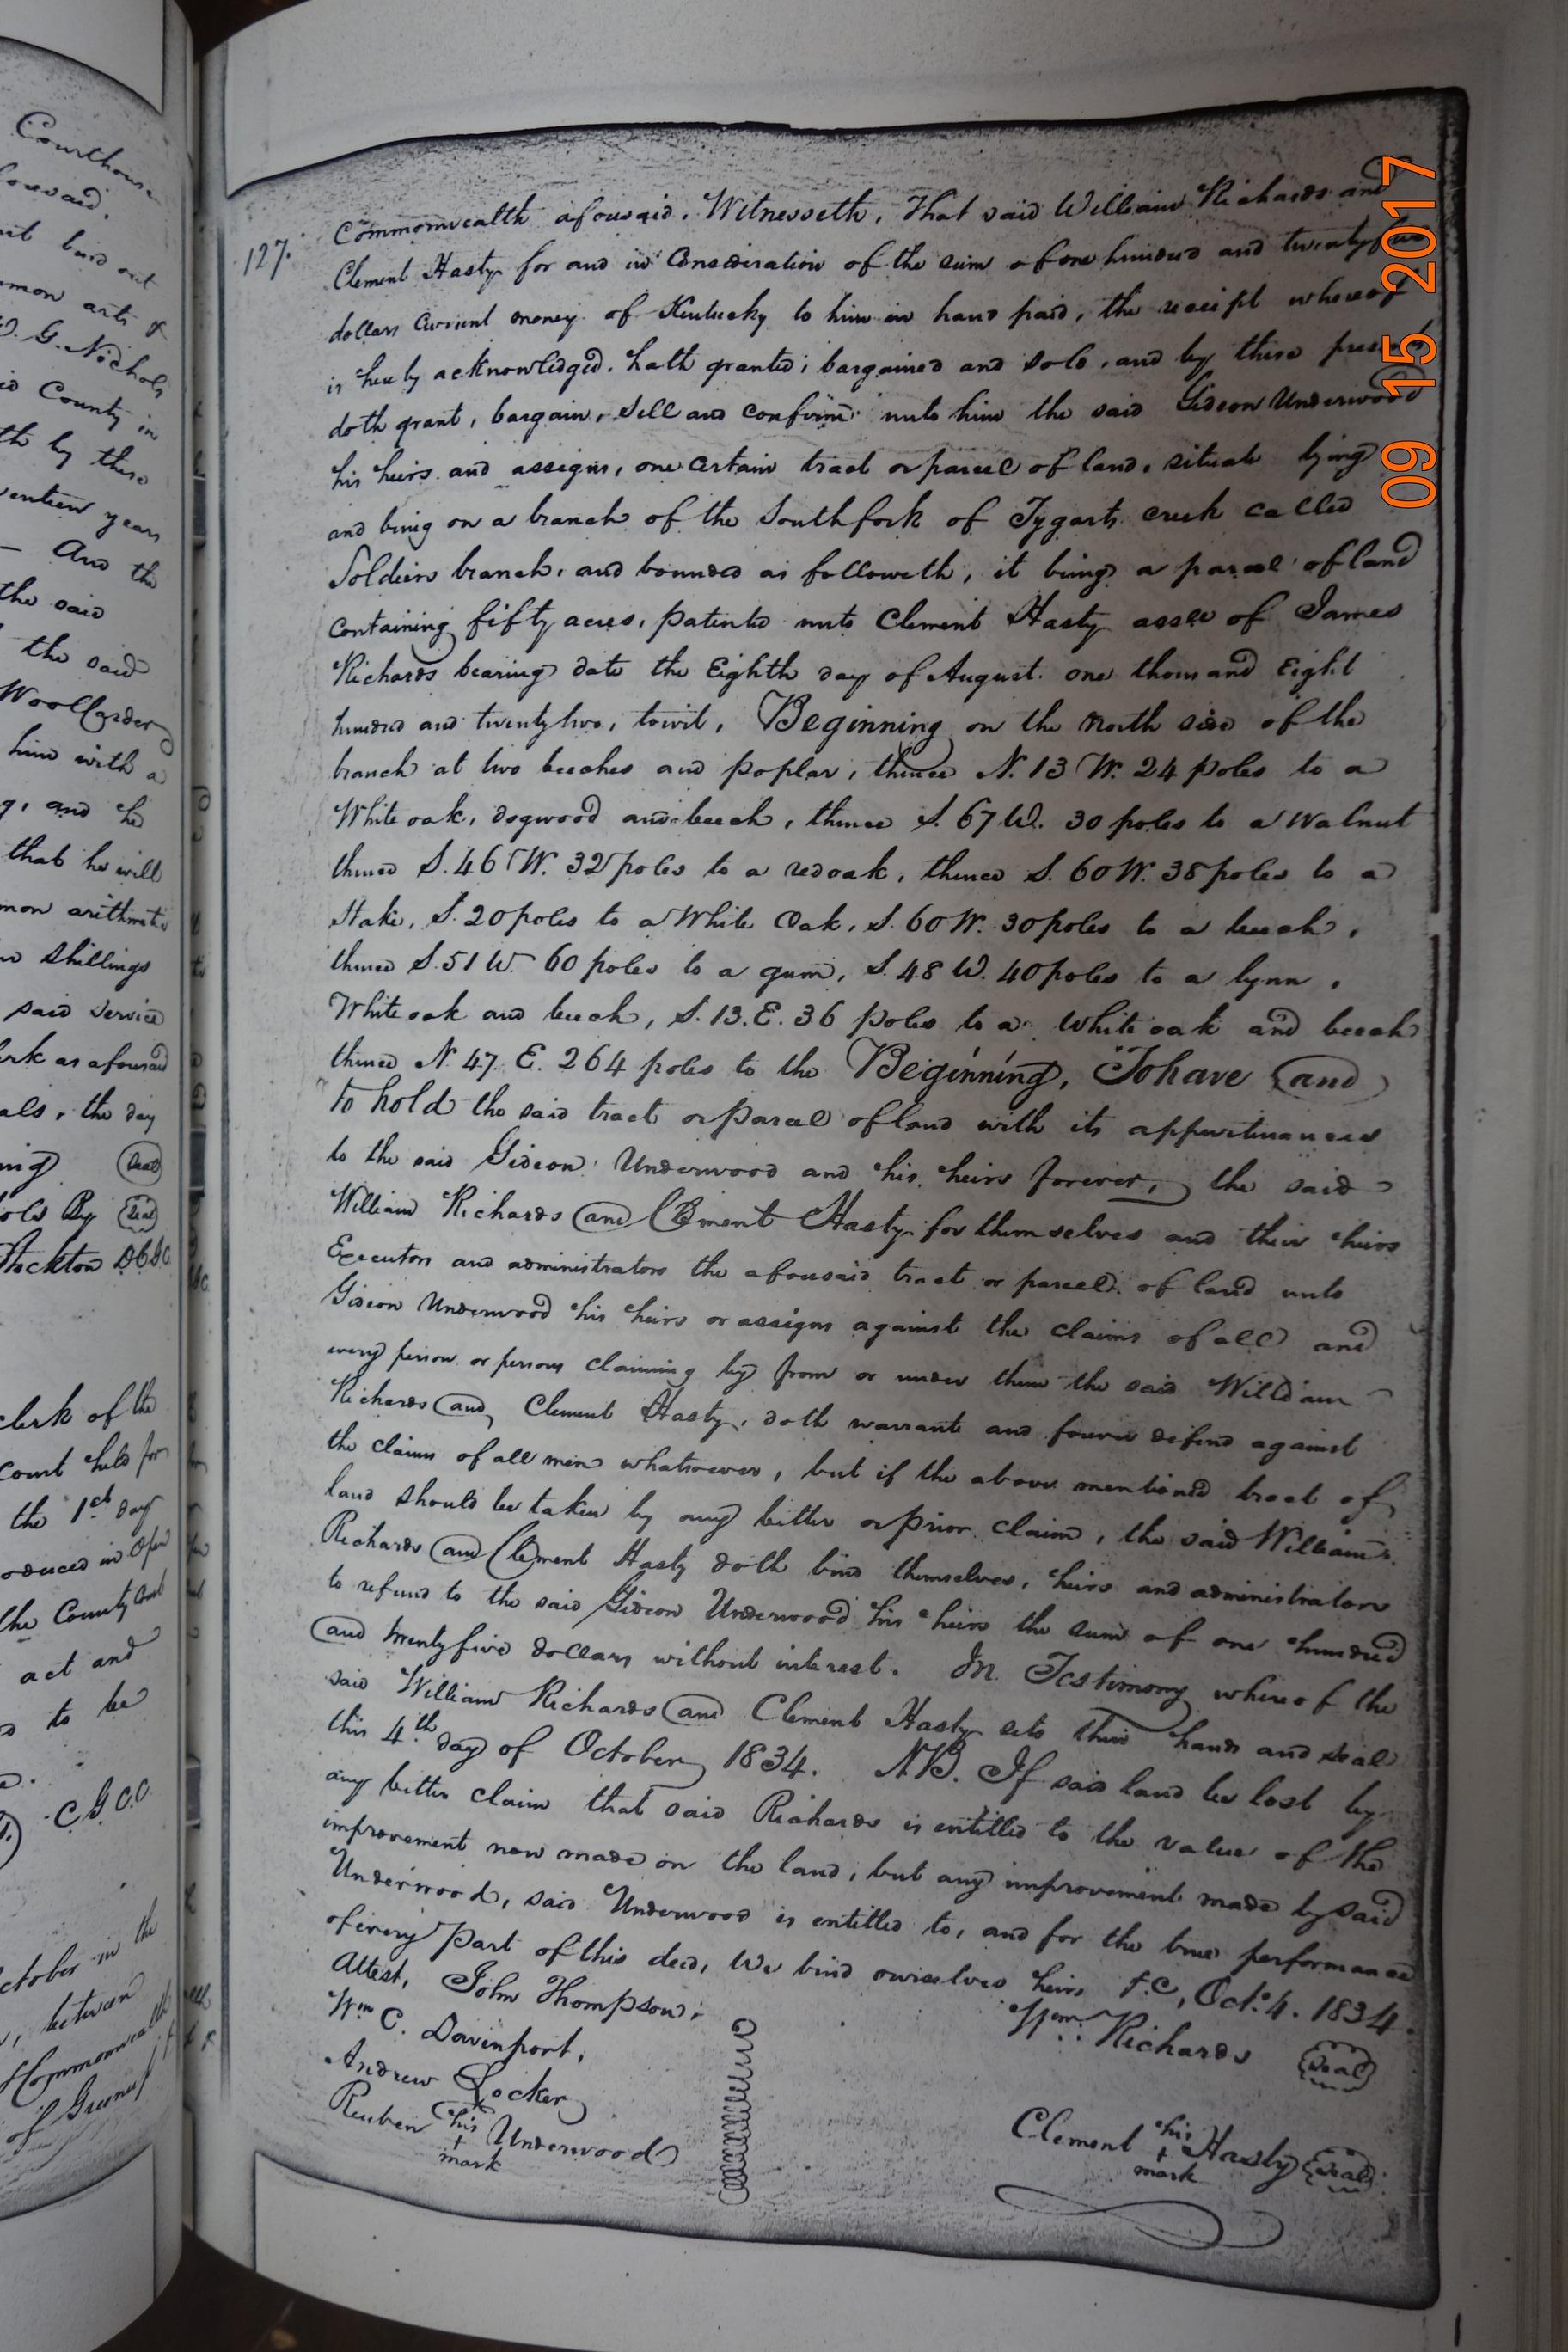 Courthouse
aforesaid,
bind out
mmon arts of
W. G. Nichols
County in
th by these
years
And the
the said
the said
Woolforder
him with a
and he
that he will
mon arithmetic
shillings
said service
clerk as aforesaid
seals, the day
Seal
Nichols By Seal
Stockton DCGC
clerk of the
Court held for
the 1st day
produced in Open
the County Court
act and
to be
C.G.C.C.
October in the
between
Commonwealth
of Greenup
127.
Commonwealth aforesaid. Witnesseth, That said William Richards and
Clement Hasty for and in Consideration of the sum of one hundred and twenty five
dollars Current money of Kentucky to him in hand paid, the receipt whereof
is hereby acknowledged, hath granted, bargained and sold, and by these presents
doth grant, bargain, sell and confirm unto him the said Gideon Underwood
his heirs and assigns, one certain tract or parcel of land, situate lying
and being on a branch of the South fork of Tygarts creek called
Soldiers branch, and bounded as followeth, it being a parcel of land
containing fifty acres, patented unto Clement Hasty assee of James
Richards bearing date the Eighth day of August one thousand Eight
hundred and twenty two, towit, Beginning on the North side of the
branch at two beeches and poplar, thence N. 13 W. 24 poles to a
White oak, dogwood and beech, thence S. 67 W. 30 poles to a Walnut
thence S. 46 W. 32 poles to a red oak, thence S. 60 W. 38 poles to a
Stake, S. 20 poles to a White Oak, S. 60 W. 30 poles to a beech,
thence S. 51 W. 60 poles to a gum, S. 48 W. 40 poles to a lynn,
White oak and beech, S. 13. E. 36 poles to a white oak and beech
thence N. 47. E. 264 poles to the Beginning, To have and
to hold the said tract or parcel of land with its appurtinances
to the said Gideon Underwood and his heirs forever, the said
William Richards and Clement Hasty for themselves and their heirs
Executors and administrators the aforesaid tract or parcel of land unto
Gideon Underwood his heirs or assigns against the claims of all and
every person or persons claiming by from or under them the said William
Richards and Clement Hasty, doth warrant and forever defend against
the claims of all men whatsoever, but if the above mentioned tract of
land should be taken by any better or prior claim, the said William
Richards and Clement Hasty doth bind themselves, heirs and administrators
to refund to the said Gideon Underwood his heirs the sum of one hundred
and twenty five dollars without interest. In Testimony whereof the
said William Richards and Clement Hasty sets their hands and seal
this 4th day of October 1834. N.B. If said land be lost by
any better claim that said Richards is entitled to the value of the
improvement now made on the land, but any improvement made by said
Underwood, said Underwood is entitled to, and for the true performance
of every part of this deed, we bind ourselves heirs &c, Oct. 4. 1834.
Attest, John Thompson,
Wm. Richards Seal
Wm C. Davenport,
Andrew Locker
Reuben his + mark Underwood
Clement his + mark Hasty Seal
09 15 2017